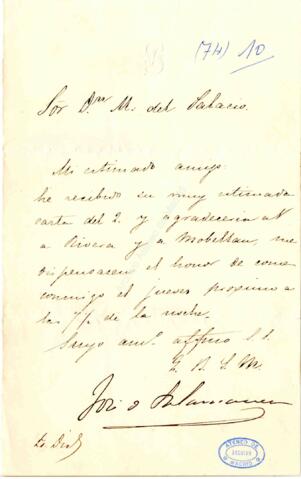 (74) 10
Sor Dn M. del Palacio.
Mi estimado amigo:
he recibido su muy estimada
carta del 2. y agradeceria a V
a Rivera y a Mobellan, me
dispensasen el honor de comer
conmigo el jueves proximo a
las 7 1/2 de la noche.
Suyo amº affmo S. S.
Q. B. S. M.
José de Salamanca
ATENEO DE
MADRID